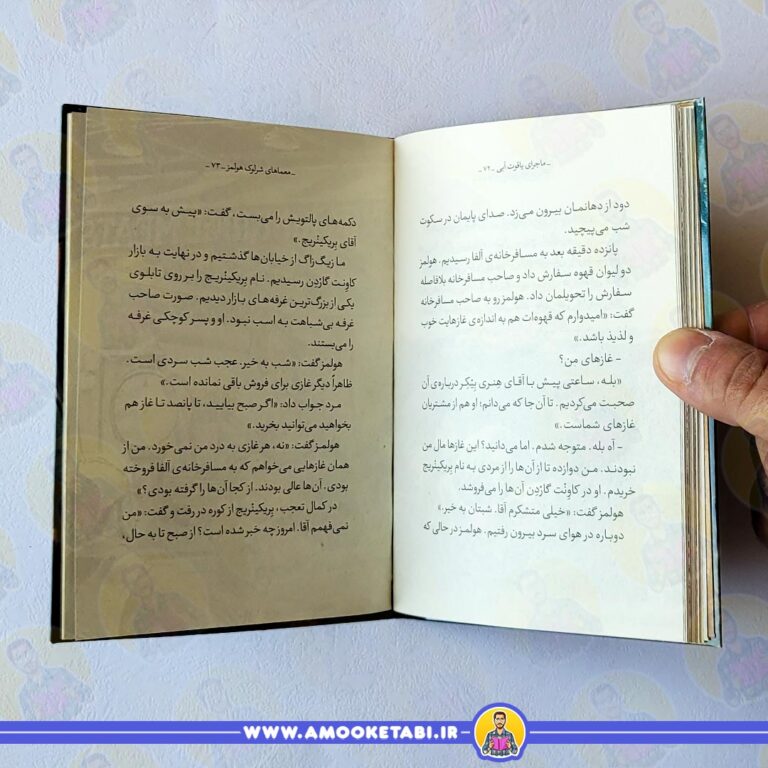 ـ ماجرای یاقوت آبی ـ ۷۲ ـ
دود از دهانمان بیرون می‌زد. صدای پایمان در سکوت
شب می‌پیچید.
پانزده دقیقه بعد به مسافرخانه‌ی آلفا رسیدیم. هولمز
دو لیوان قهوه سفارش داد و صاحب مسافرخانه بلافاصله
سفارش را تحویلمان داد. هولمز رو به صاحب مسافرخانه
گفت: «امیدوارم که قهوه‌ات هم به اندازه‌ی غازهایت خوب
و لذیذ باشد.»
- غازهای من؟
«بله، ساعتی پیش با آقای هِنری بِیکِر درباره‌ی آن
صحبت می‌کردیم. تا آن‌جا که می‌دانم؛ او هم از مشتریان
غازهای شماست.»
- آه بله. متوجه شدم. اما می‌دانید؟ این غازها مال من
نبودند. من دوازده تا از آن‌ها را از مردی به نام بِریکینْریج
خریدم. او در کاوِنْت گاردِن آن‌ها را می‌فروشد.
هولمز گفت: «خیلی متشکرم آقا. شبتان به خیر.»
دوباره در هوای سرد بیرون رفتیم. هولمز در حالی که
ـ معماهای شرلوک هولمز ـ ۷۳ ـ
دکمه‌های پالتویش را می‌بست، گفت: «پیش به سوی
آقای بِریکینْریج.»
ما زیگ‌زاگ از خیابان‌ها گذشتیم و در نهایت به بازار
کاوِنت گاردِن رسیدیم. نام بِریکینْریج را بر روی تابلوی
یکی از بزرگ‌ترین غرفه‌های بازار دیدیم. صورت صاحب
غرفه بی‌شباهت به اسب نبود. او و پسر کوچکی غرفه
را می‌بستند.
هولمز گفت: «شب به خیر. عجب شب سردی است.
ظاهراً دیگر غازی برای فروش باقی نمانده است.»
مرد جواب داد: «اگر صبح بیایید، تا پانصد تا غاز هم
بخواهید می‌توانید بخرید.»
هولمز گفت: «نه، هر غازی به درد من نمی‌خورد. من از
همان غازهایی می‌خواهم که به مسافرخانه‌ی آلفا فروخته
بودی. آن‌ها عالی بودند. از کجا آن‌ها را گرفته بودی؟»
در کمال تعجب، بِریکینْریج از کوره در رفت و گفت: «من
نمی‌فهمم آقا. امروز چه خبر شده است؟ از صبح تا به حال،
WWW.AMOOKETABI.IR